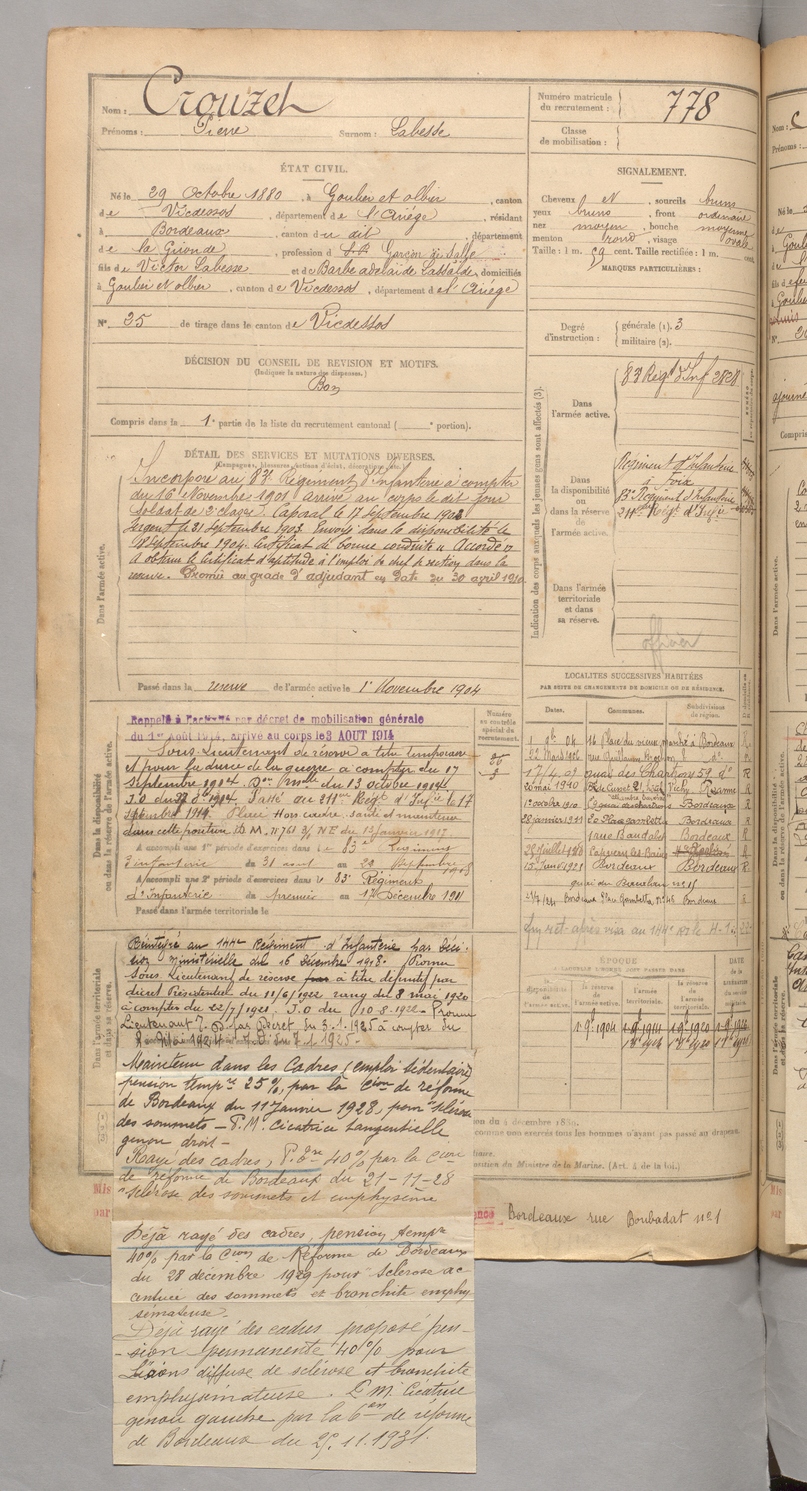 Nom : Crouzet
Prénoms : Pierre Surnom : Labesse
ÉTAT CIVIL.
Né le 29 Octobre 1880, à Goulier et olbier, canton
de Vicdessos, département de l'Ariége, résidant
à Bordeaux, canton du dit, département
de la Gironde, profession d Garçon de Salle
fils de Victor Labesse et de Barbe adelaide Lassalde, domiciliés
à Goulier et olbier, canton de Vicdessos, département de l'Ariége
N° 25 de tirage dans le canton de Vicdessos
DÉCISION DU CONSEIL DE REVISION ET MOTIFS.
(Indiquer la nature des dispenses.)
Bon
Compris dans la 1e partie de la liste du recrutement cantonal ( e portion).
DÉTAIL DES SERVICES ET MUTATIONS DIVERSES.
(Campagnes, blessures, actions d'éclat, décorations, etc.)
Dans l'armée active.
Incorporé au 83e Régiment d'Infanterie à compter
du 16 Novembre 1901, arrivé au corps le dit jour
Soldat de 2e classe. Caporal le 17 septembre 1902.
Sergent le 21 septembre 1903. Envoyé dans la disponibilité le
18 septembre 1904. Certificat de bonne conduite « Accordé »
A obtenu le certificat d'aptitude à l'emploi de chef de section dans la
reserve. Promu au grade d'adjudant en date du 30 avril 1910.
Passé dans la reserve de l'armée active le 1er Novembre 1904
Dans la disponibilité
ou dans la réserve de l'armée active.
Rappelé à l'activité par décret de mobilisation générale
du 1er Août 1914, arrivé au corps le 3 AOUT 1914
Sous-Lieutenant de réserve à titre temporaire
et pour la durée de la guerre à compter du 17
Septembre 1914. Don Mlle du 13 octobre 1914
J.O du 22 8bre 1914. Passé au 211me Régt d'Infie le 17
septembre 1914. Placé Hors cadre. Santé et maintenu
dans cette position D.M. 11761 3/5 NE du 13 janvier 1917.
A accompli une 1re période d'exercices dans le 83e Régiment
d'infanterie du 31 aout au 22 Septembre 1908
A accompli une 2e période d'exercices dans le 83e Régiment
d'Infanterie du premier au 17 Décembre 1911
Passé dans l'armée territoriale le
Dans l'armée territoriale
et dans sa réserve.
Réintégré au 144e Régiment d'Infanterie par déci-
sion ministérielle du 16 Décembre 1918. Promu
Sous Lieutenant de réserve à titre définitif par
décret Présidentiel du 11/6/1922 rang du 8 mai 1920
à compter du 22/7/1921. J.O du 10.8.1922. Promu
Lieutenant T.D. par Décret du 3.1.1925 à compter du
8 Mai 1924 J.O du 7.1.1925.
Maintenu dans les Cadres (emploi sédentaire)
pension tempre 25%, par la Cion de réforme
de Bordeaux du 11 Janvier 1928, pour sclérose
des sommets - P.M. Cicatrice tangentielle
genou droit -
Rayé des cadres, P. 40% par la Cion
de réforme de Bordeaux du 21-11-28
"sclérose des sommets et emphysème
Déjà rayé des cadres, pension tempre
40% par la Cion de Réforme de Bordeaux
du 28 décembre 1929 pour sclérose ac
centuée des sommets et bronchite emphy
sémateuse.
Déjà rayé des cadres proposé pen-
-sion permanente 40% pour
Lésions diffuse de sclérose et bronchite
emphysémateuse. P.M. Cicatrice
genou gauche par la Con de réforme
de Bordeaux du 25.11.1931.
Numéro matricule
du recrutement : 778
Classe
de mobilisation :
SIGNALEMENT.
Cheveux et sourcils bruns
yeux bruns, front ordinaire
nez moyen, bouche moyenne
menton rond, visage ovale
Taille : 1 m. 59 cent. Taille rectifiée : 1 m. cent.
MARQUES PARTICULIÈRES :
Degré
d'instruction : générale (1). 3
militaire (2).
Indication des corps auxquels les jeunes gens sont affectés (3).
Dans
l'armée active.
83 Régt d'Inf 2828
Dans
la disponibilité
ou dans la réserve
de
l'armée active.
Régiment d'Infanterie
à Foix
83e Régiment d'Infanterie
211e Régt d'Infie
Dans l'armée
territoriale
et dans
sa réserve.
officier
LOCALITÉS SUCCESSIVES HABITÉES
PAR SUITE DE CHANGEMENTS DE DOMICILE OU DE RÉSIDENCE.
Numéro
au contrôle
spécial du
recrutement.
Dates. Communes. Subdivision
de région.
1 9bre 04 16 Place du vieux marché à Bordeaux R
22 Mars 1906 rue Guillaume Brochon do R
17/4 09 quai des Chartrons 59 do R
20 mai 1910 Vichy Roanne R
1er octobre 1910 Bordeaux
28 janvier 1911 20 Place gambetta Bordeaux R
1 rue Baudabos Bordeaux R
15 Juin 1921 Bordeaux Bordeaux R
21/7/21 Bordeaux Place Gambetta no 46 Bordeaux R
ÉPOQUE
À LAQUELLE L'HOMME DOIT PASSER DANS
la disponibilité
de l'armée active. la réserve
de
l'armée active. l'armée
territoriale. la réserve
de
l'armée
territoriale. DATE
de la
libération
du service
militaire
1er 9bre 1904 1er 9bre 1914 1er 9bre 1920
on du 4 décembre 1889.
comme non exercés tous les hommes n'ayant pas passé au drapeau
ntion du Ministre de la Marine. (Art. 4 de la loi.)
Bordeaux rue Boubadat no 1